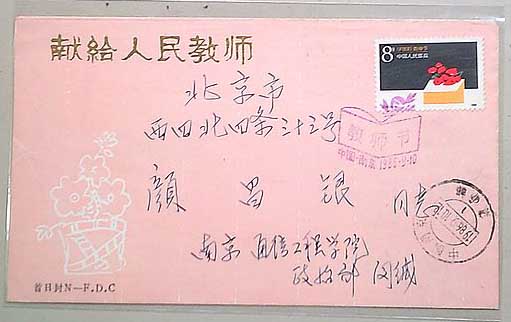 献给人民教师
8分
中国人民邮政
北京市
西四北四条三十三号
教师节
中国·南京 1986·9·10
颜昌银 同志
南京通信工程学院
政治部 闵缄
首日封N—F.D.C